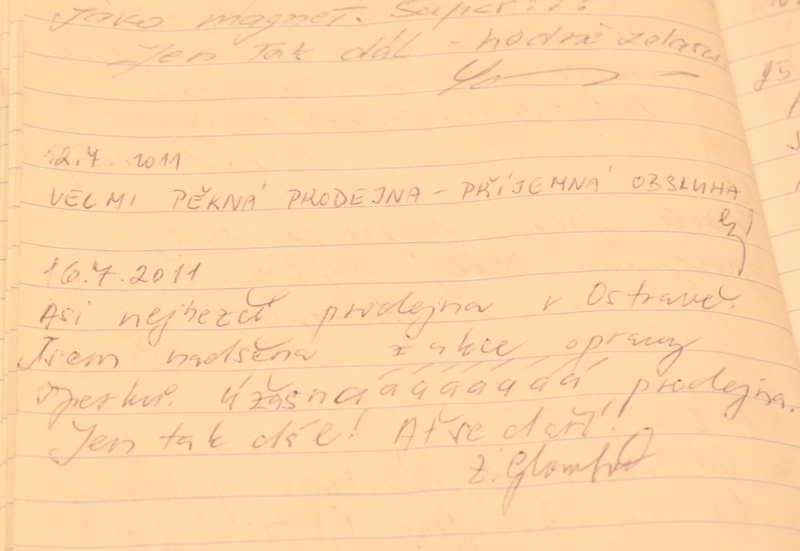 Jako magnet. Super!!!
Jen tak dál - hodně zdaru
12.7. 2011
VELMI PĚKNÁ PRODEJNA - PŘÍJEMNÁ OBSLUHA.
16.7.2011
Asi nejhezčí prodejna v Ostravě.
Jsem nadšena z akce opravy
šperků. Úžasnáááááááá prodejna.
Jen tak dál! Ať se daří!